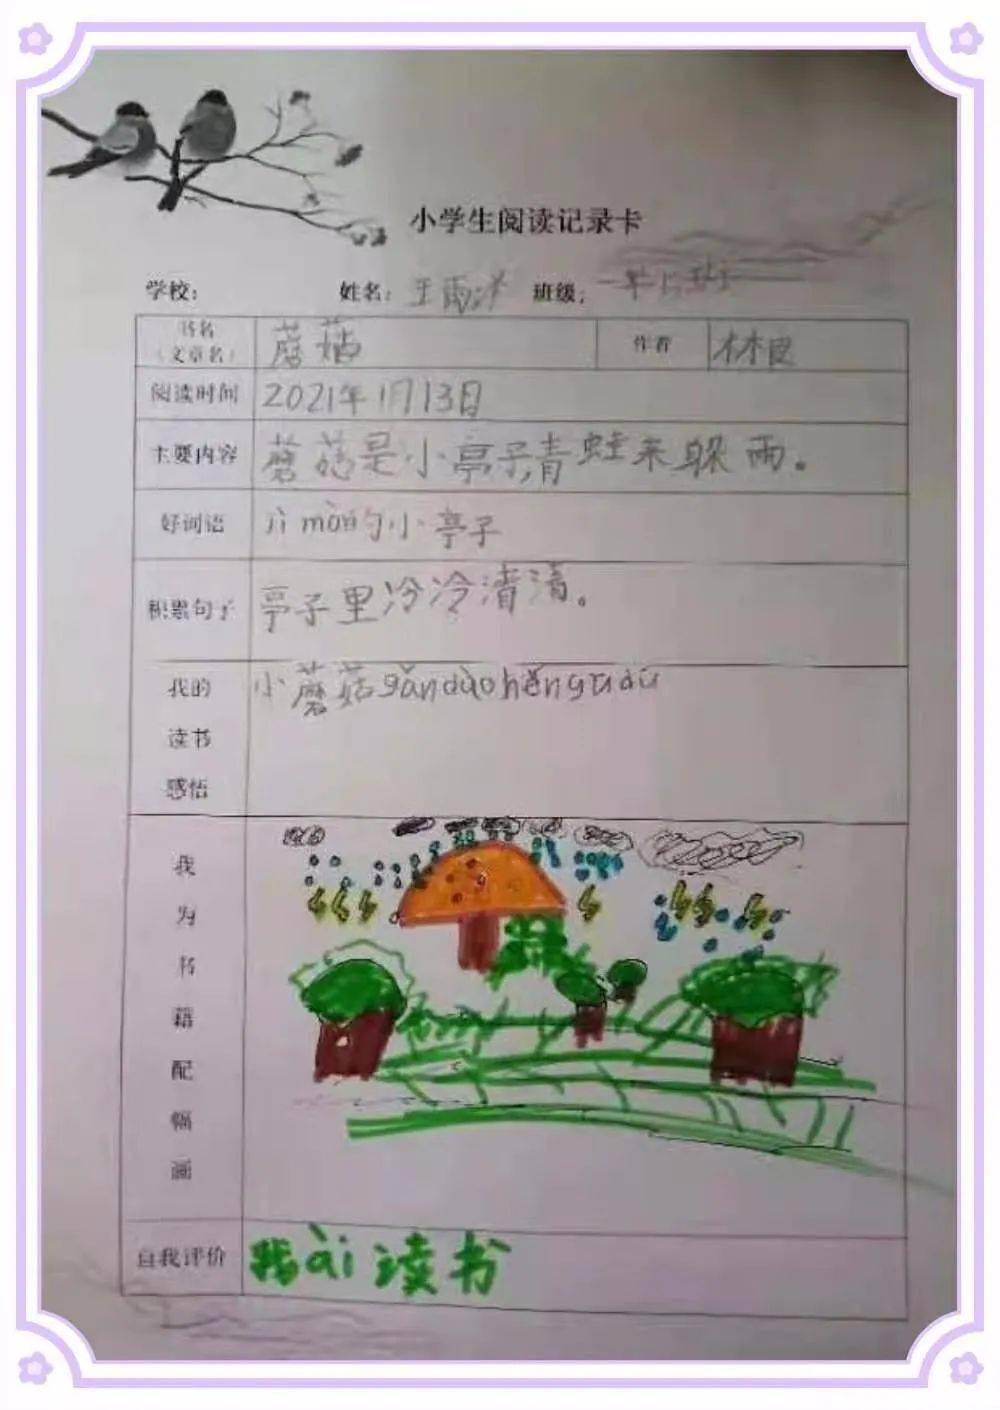 小学生阅读记录卡
学校： 姓名：王雨洋 班级：一年5班
书名（文章名） 蘑菇 作者 林良
阅读时间 2021年1月13日
主要内容 蘑菇是小亭子,青蛙来躲雨。
好词语 jì mò的小亭子
积累句子 亭子里冷冷清清。
我的读书感悟 小蘑菇gǎn dào hěn gū dú
我为书籍配幅画
自我评价 我ài读书